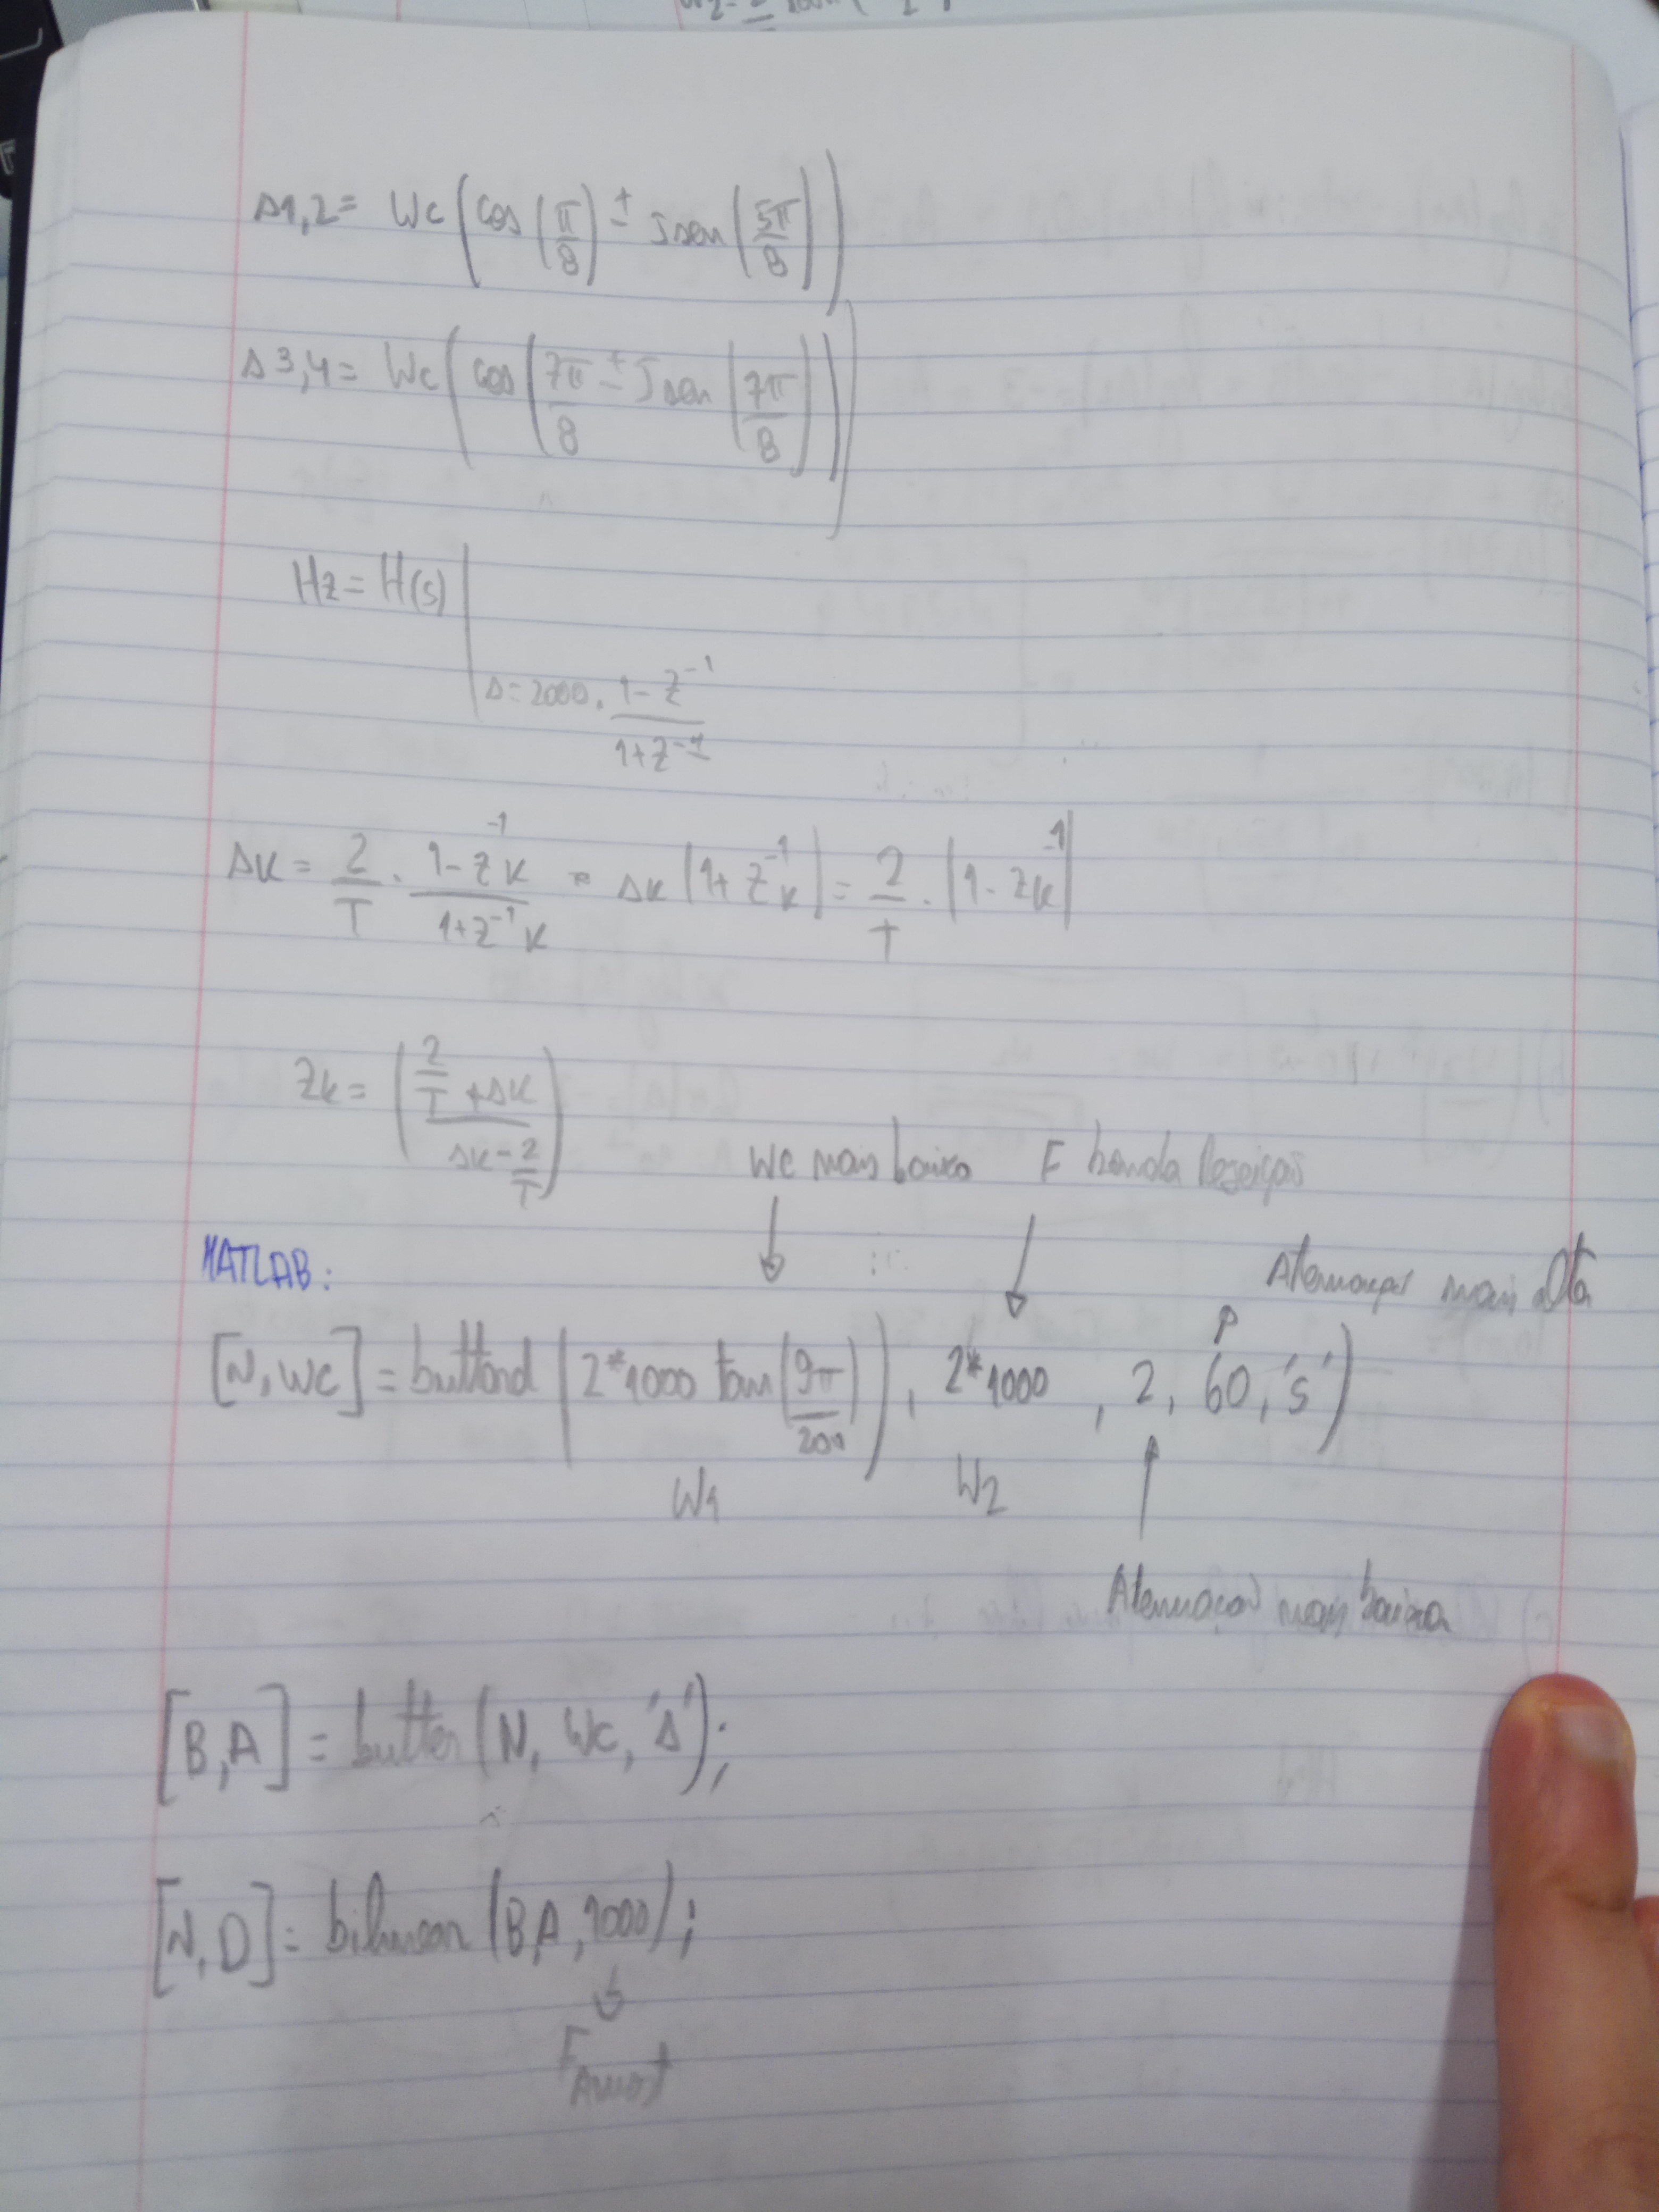 s1,2 = Wc (cos (π/8) ± J sen (5π/8))
s3,4 = Wc (cos (7π/8 ± J sen (7π/8)))
Hz = H(s) |
s = 2000 . 1 - z^-1 / 1 + z^-1
sK = 2/T . 1 - z^-1 K / 1 + z^-1 K = sK (1 + z^-1 K) = 2/T . (1 - zK^-1)
Zk = (2/T + sK / sK - 2/T)
Wc mais baixo F banda Rejeição
MATLAB:
Atenuação mais alta
[N, Wc] = buttord (2*1000 tan (9π/200)), 2*1000, 2, 60, 's')
W1 W2
Atenuação mais baixa
[B, A] = butter (N, Wc, 's');
[N, D] = bilinear (B, A, 1000);
F Amost